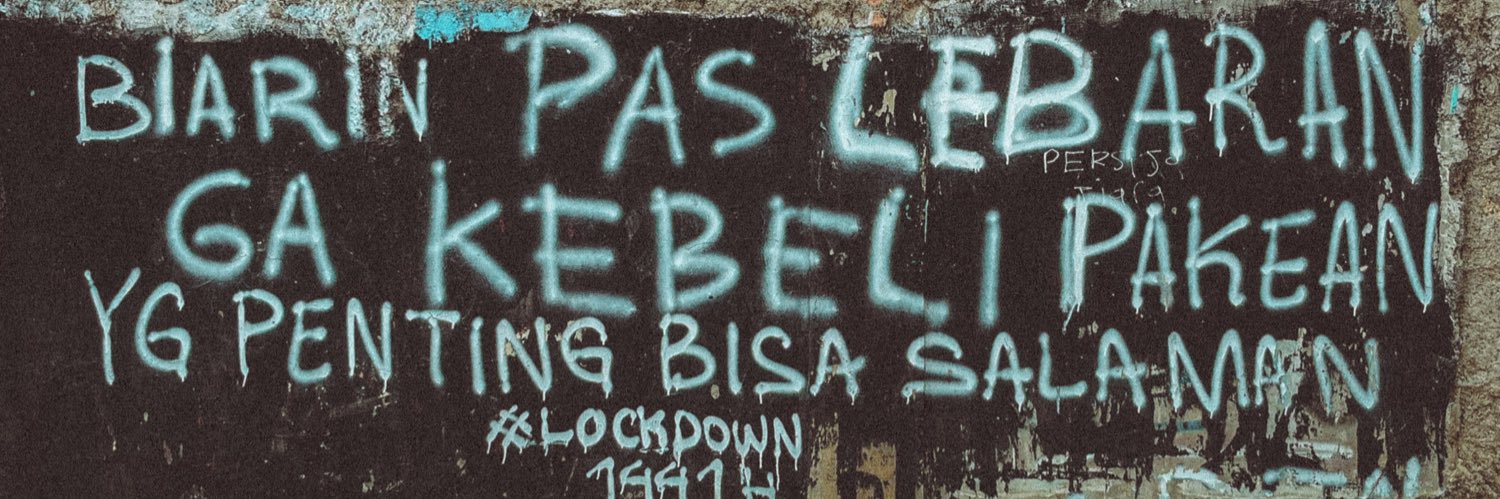 BIARIN PAS LEBARAN
PERSIJA
GA KEBELI PAKEAN
YG PENTING BISA SALAMAN
#LOCKDOWN
1441 H